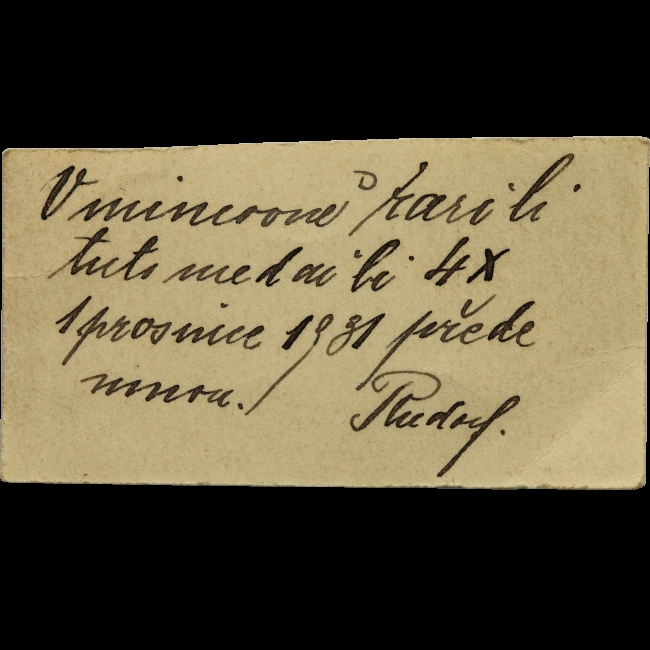 V mincovně razili
tuto medaili 4x
1 prosince 1931 přede
mnou.
Rudolf.